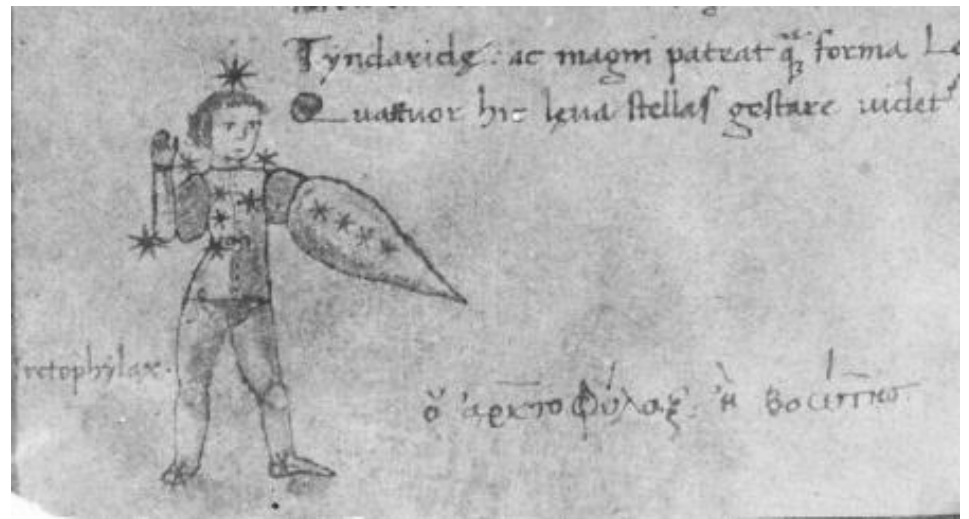 Tyndaridę. ac magni pateat q; forma L
Quattuor hic lęua stellas gestare uidet
rctophylax.
ὁ ἀρκτοφύλαξ. ἢ βοώτης